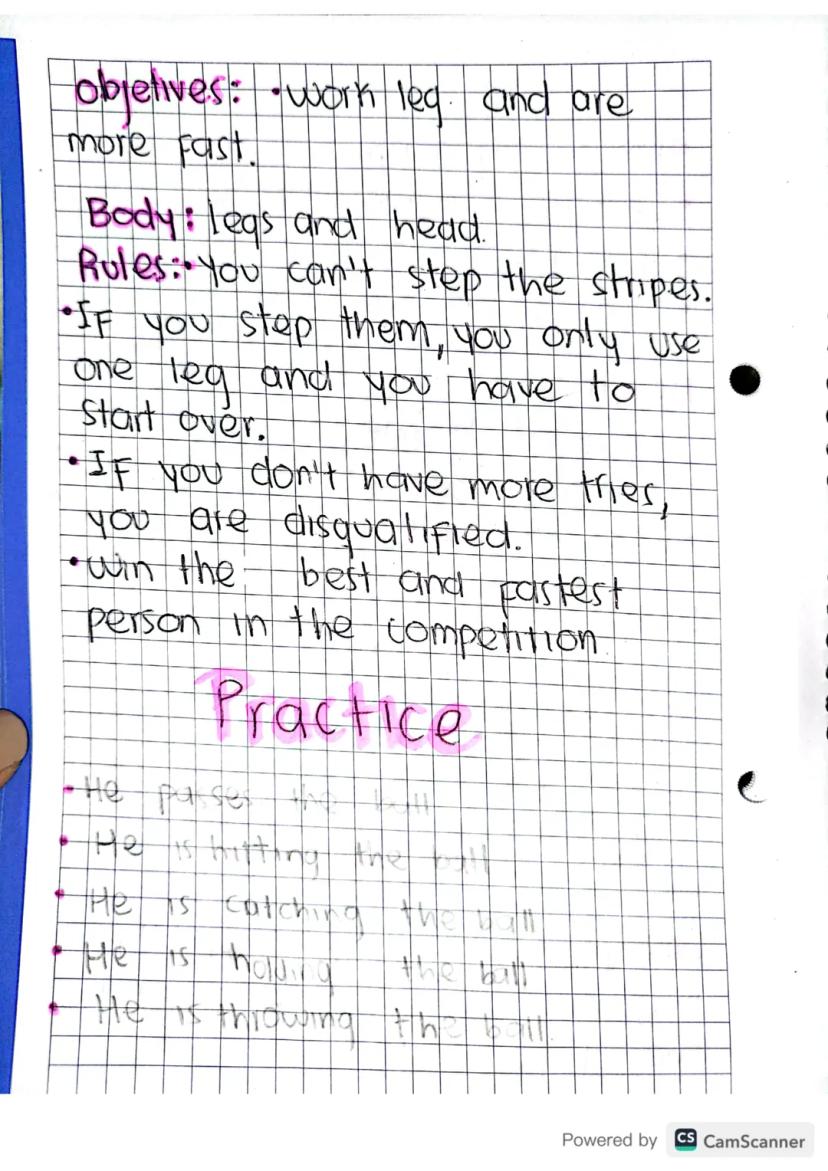 objetives: • work leg. and are
more fast.
Body: legs and head.
Rules: • you can't step the stripes.
• IF you step them, you only use
one leg and you have to
start over.
• IF you don't have more tries,
you are disqualified.
• win the best and fastest
person in the competition
Practice
• He passes the ball
• He is hitting the ball
• He is catching the ball
• He is holding the ball
• He is throwing the ball.
Powered by CS CamScanner